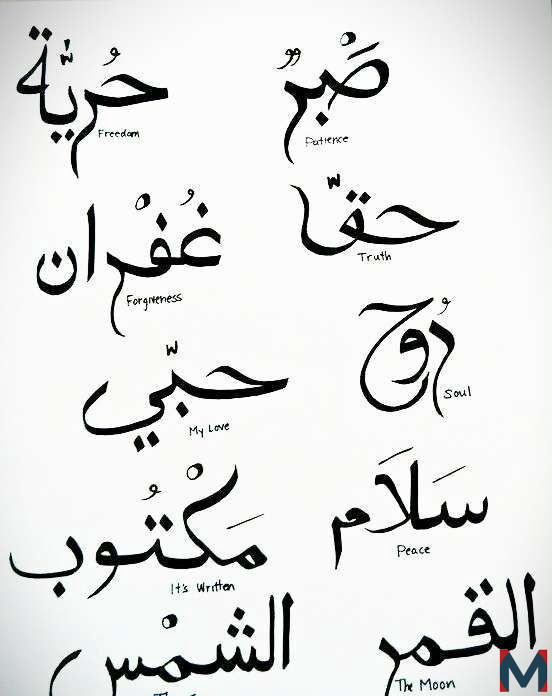 حُريّة
Freedom
صَبْرٌ
Patience
غُفْران
Forgiveness
حقّا
Truth
حبّي
My Love
رُوح
Soul
مَكْتُوب
It's Written
سَلَام
Peace
الشمْس
القمر
The Moon
M